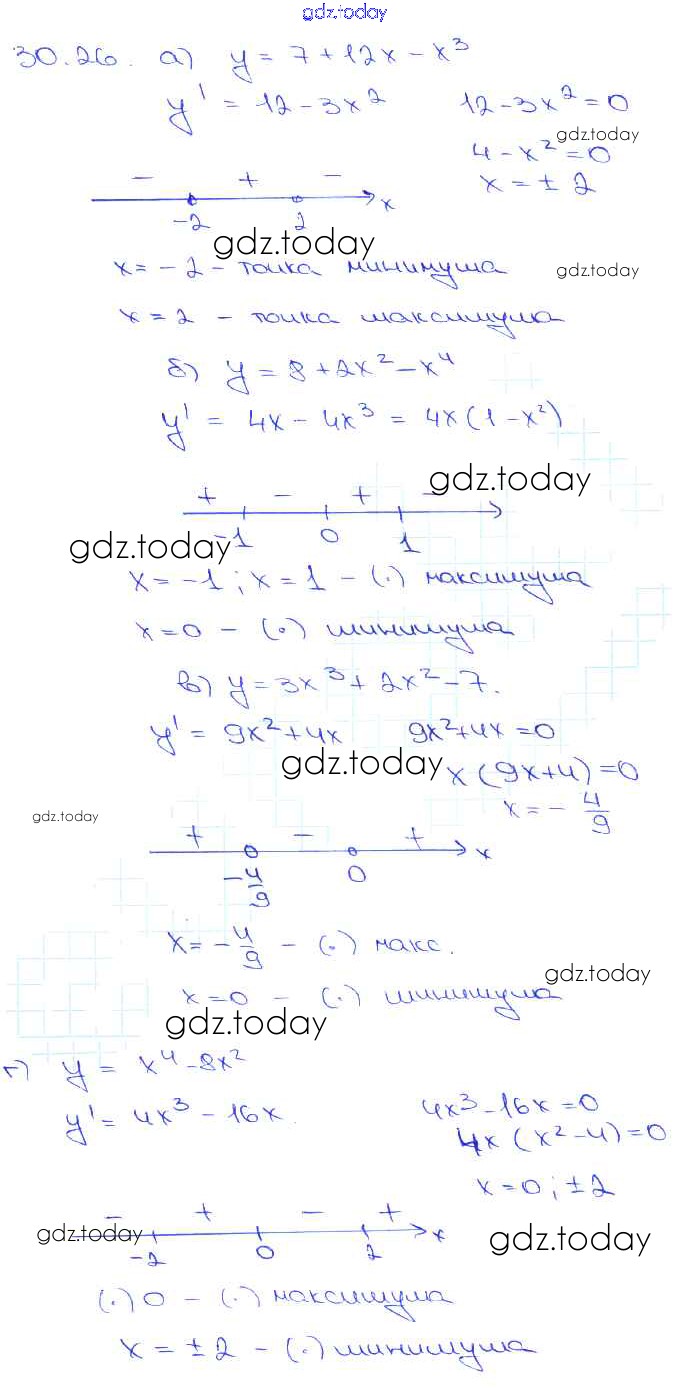 gdz.today
30.26. а) y = 7 + 12x - x³
y' = 12 - 3x² 12 - 3x² = 0
gdz.today
4 - x² = 0
x = ± 2
- + -
-2 2 x
gdz.today
x = -2 - точка минимума gdz.today
x = 2 - точка максимума
б) y = 8 + 2x² - x⁴
y' = 4x - 4x³ = 4x(1 - x²)
gdz.today
+ - + -
-1 0 1
gdz.today
x = -1; x = 1 - (.) максимума
x = 0 - (.) минимума
в) y = 3x³ + 2x² - 7.
y' = 9x² + 4x 9x² + 4x = 0
gdz.today x(9x + 4) = 0
x = - 4/9
gdz.today
+ - +
-4/9 0 x
x = -4/9 - (.) макс.
gdz.today
x = 0 - (.) минимума
gdz.today
г) y = x⁴ - 8x²
y' = 4x³ - 16x. 4x³ - 16x = 0
4x(x² - 4) = 0
x = 0; ±2
- + - +
gdz.today gdz.today
-2 0 2 x
(.) 0 - (.) максимума
x = ±2 - (.) минимума